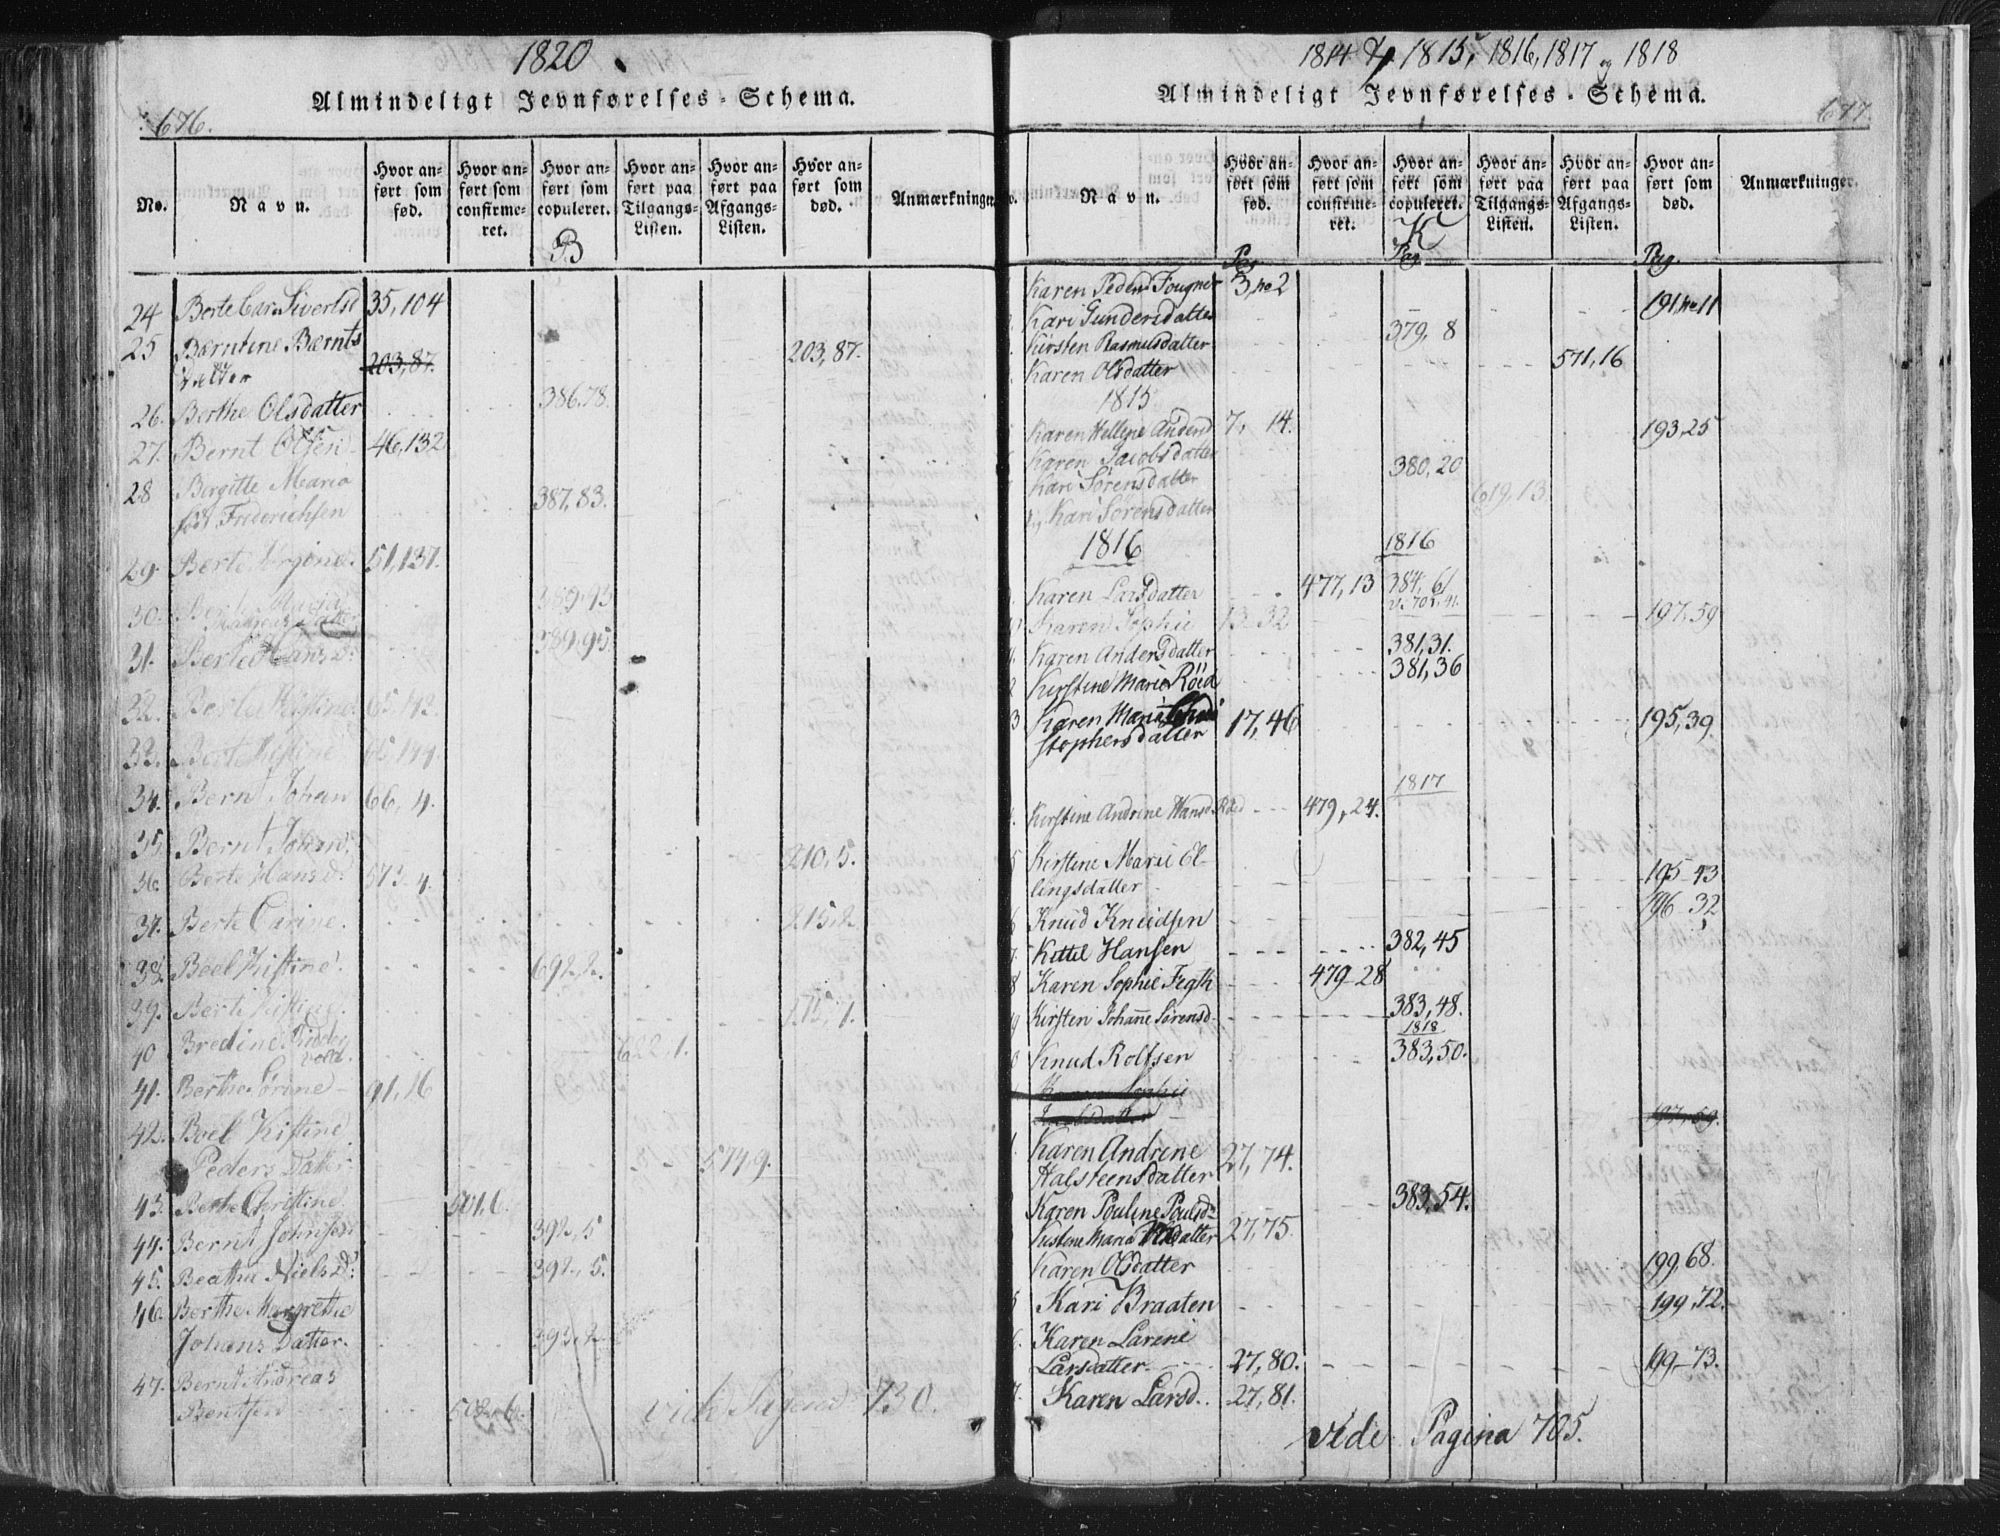 1820
Almindeligt Jevnførelses-Schema.
676.
No.
Navn.
Hvor anført som fød.
Hvor anført som confirmeret.
Hvor anført som copuleret.
Hvor anført paa Tilgangs-Listen.
Hvor anført paa Afgangs-Listen.
Hvor anført som død.
Anmærkninger
B
24 Berte Car. Sivertsd 35,104
25 Bærntine Bærnts 203,87.
datter 203,87.
26. Berthe Olsdatter 386,78.
27. Bernt Olsen 46,132
28 Birgitte Maria
fød Friderichsen 387,83.
29. Berte 51,137.
30. 389,95
31. Berte Hansd: 389,95.
32. Berte Kistine
33. Berte Kistine
34. Bernt Johan 66, 4.
35. Bernt 210,5.
36. Berte Hansd: 573. 4.
37. Berte Carine. 215,2.
38. Boel Kistine. 692,2.
39. Berte Kistine.
40 Bredine Ridder
vold. 622,1.
41. Berthe Sørine 91,16
42. Boel Kistine
Peders Datter 574,9.
43. Berthe Christine 501,6.
44. Bernt Johnsen 392,5
45. Beathe Nielsd: 392,5.
46. Berthe Margrethe
Johans Datter. 393,2
47. Bernt Andreas
Bentsen 502,6.
vide Pagina 730.
1814 & 1815, 1816, 1817 og 1818
Almindeligt Jevnførelses-Schema.
677.
No.
Navn.
Hvor anført som fød.
Hvor anført som confirmeret.
Hvor anført som copuleret.
Hvor anført paa Tilgangs-Listen.
Hvor anført paa Afgangs-Listen.
Hvor anført som død.
Anmærkninger.
K
Pag Pag Pag.
Karen Peders Fougner 3,No 2
Kari Gundersdatter 191,No 11
Kirsten Rasmusdatter 379, 8
Karen Olsdatter 571,16
1815
Karen Hellene Andersd 7, 14. 193,25
Karen Jacobsdatter 380,20
Kari Sørensdatter 619,13.
Kari Sørensdatter
1816 1816
Karen Larsdatter 477,13 384,61
Karen Sophie 13-32 197,59
Karen Andersdatter 381,31.
2 Kirstine Marie Röed 381,36
3 Karen Marie Chri
stophersdatter 17,46 195,39.
1817
Kirstine Andrine Hansd Röed 479,24.
5 Kirstine Marie El-
lingsdatter 195-43
6 Knud Knudsen 196-32
7. Kittil Hansen 382,45
8 Karen Sophie Fegth 479-28
9 Kirsten Johanne Sørensd. 383,48.
1818.
Knud Rolfsen 383,50.
197,59.
Karen Andrine
Halsteensdatter 27,74.
Karen Pouline Poulsd: 383,54.
Kistine Maria datter 27,75.
Karen Olsdatter 199,68.
5 Kari Braaten 199,72.
6. Karen Larine
Larsdatter 27,80. 199-73.
7. Karen Larsd. 27,81.
vide Pagina 705.